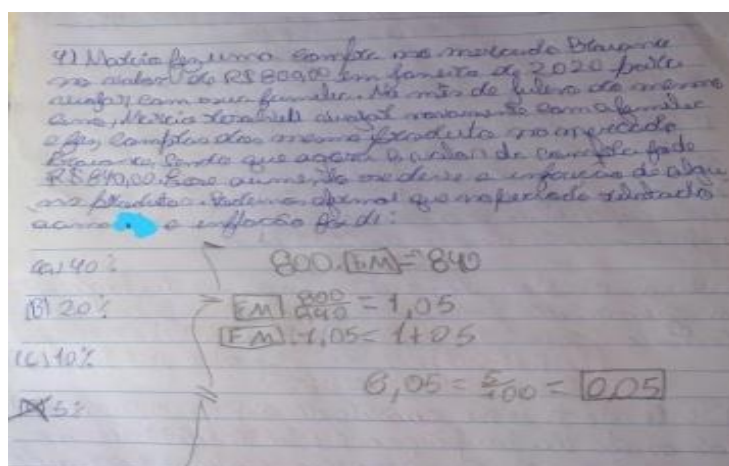 4) Marcio fez uma compra no mercado Bragança
no valor de R$ 800,00 em janeiro de 2020 para
com sua família. No mês de do mesmo
ano, Marcio novamente com a família
e fez compras dos mesmo produto no mercado
Bragança, sendo que agora o valor da compra foi de
R$ 840,00. Esse aumento se deve a inflação de algu
ns produtos. Podemos afirmar que no período
acima a inflação foi de:
(a) 40%
800.[FM]=840
(B) 20%
[FM] 800/840 = 1,05
[FM] 1,05 = 1+05
(c) 10%
0,05 = 5/100 = 0,05
5%